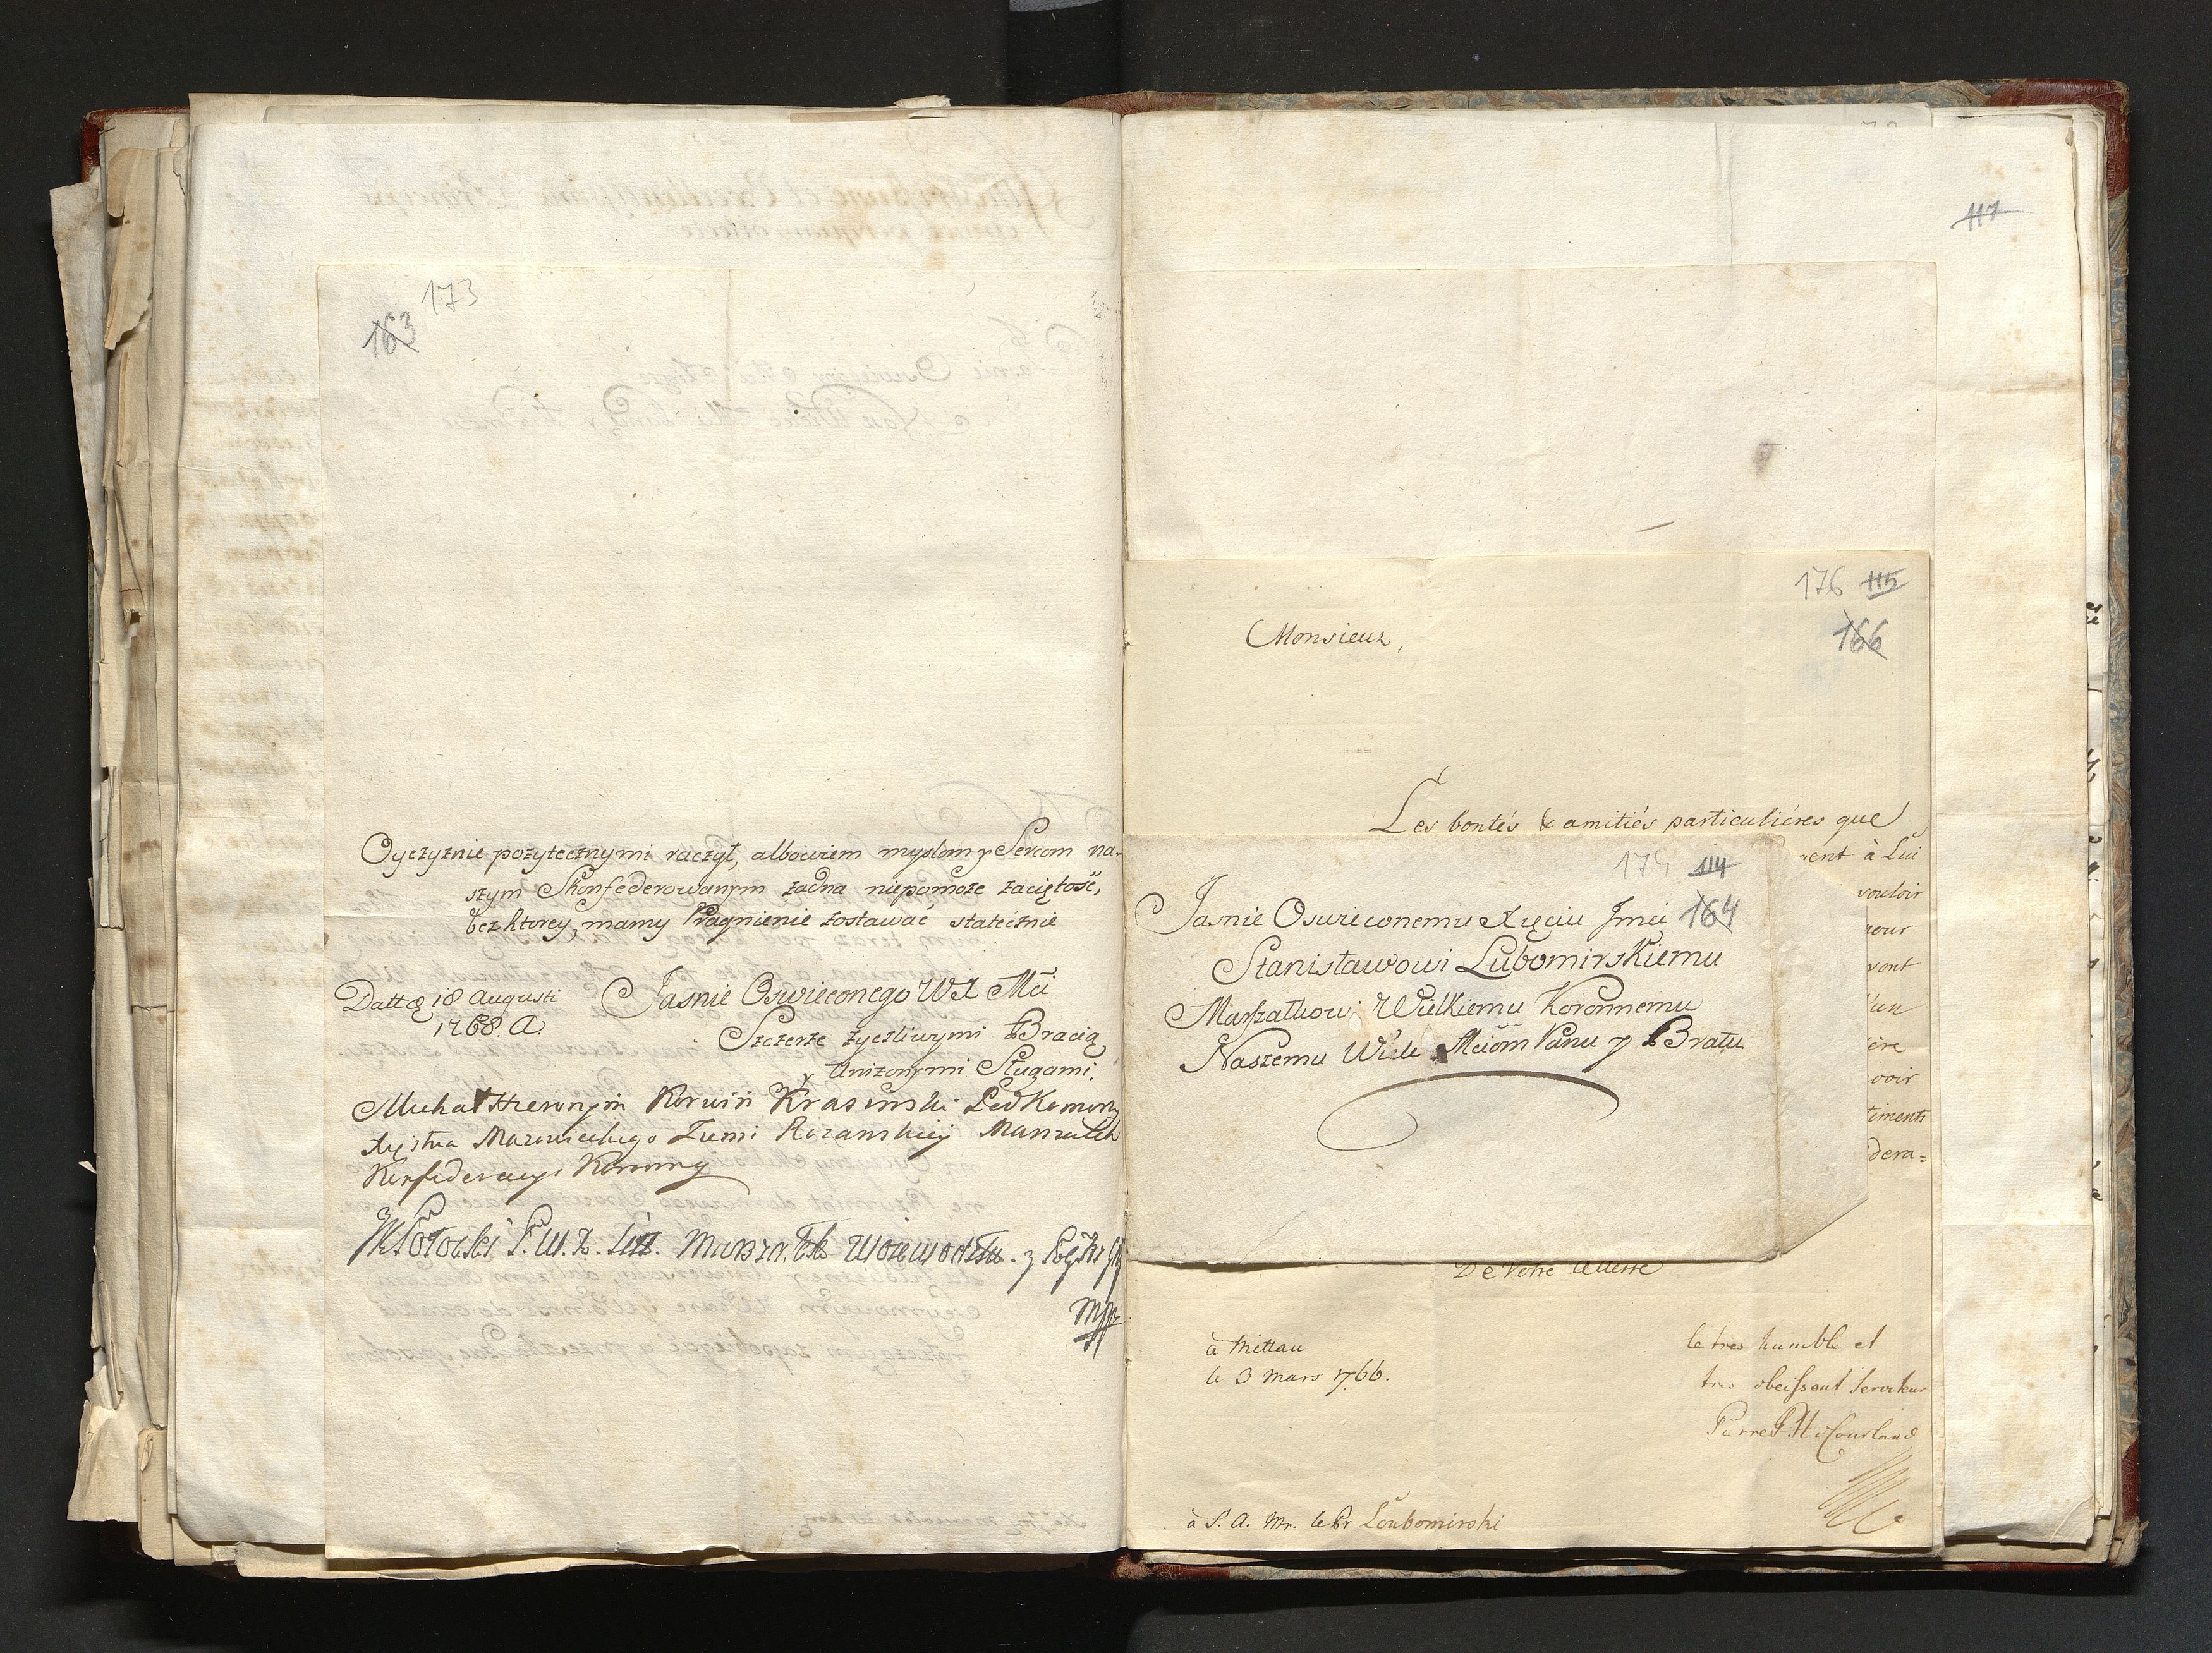 173
163
Oyczyznie pozytecznymi raczył, albowiem myslom y Sercom na-
szym Skonfederowanym zadna niepomoże zaciętość,
bez ktorey, mamy Pragnienie zostawać statecznie
Datta 18 Augusti
1768. A.
Jasnie Oswieconego WX Mci
Szczerze zyczliwymi Bracią
y Unizonymi Sługami.
Michał Hieronym Korwin Krasinski Podkomorzy
Xięstwa Mazowieckiego Ziemi Rozanskiey Marszałek
Konfederacyi Koronney
Potocki P. W. X. Lit. Marszałek Woiewodztw. y
mpp
117
176 115
166
Monsieur,
Les bontés & amitiés particuliéres que
rent à Lui
vouloir
pour
vont
l'un
ère
voir
timents
dera=
174 114
164
Jasnie Oswieconemu Xięciu Jmci
Stanisławowi Lubomirskiemu
Marszałkowi Wielkiemu Koronnemu
Naszemu Wielc Mciom Panu y Bratu
De Votre Altesse
à Mittau
le 3 Mars 1766.
le tres humble et
tres obeissant Serviteur
Pierre P. H. de Courland
à S. A. Mr. le Pr Loubomirski